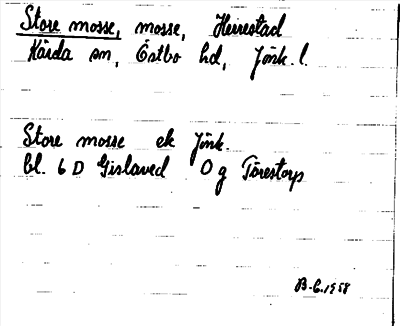 Store mosse, mosse, Heirestad
Kärda sn, Östbo hd, Jönk. l.
Store mosse ek Jönk.
bl. 6 D Gislaved 0 g Törestorp
B-G. 1958